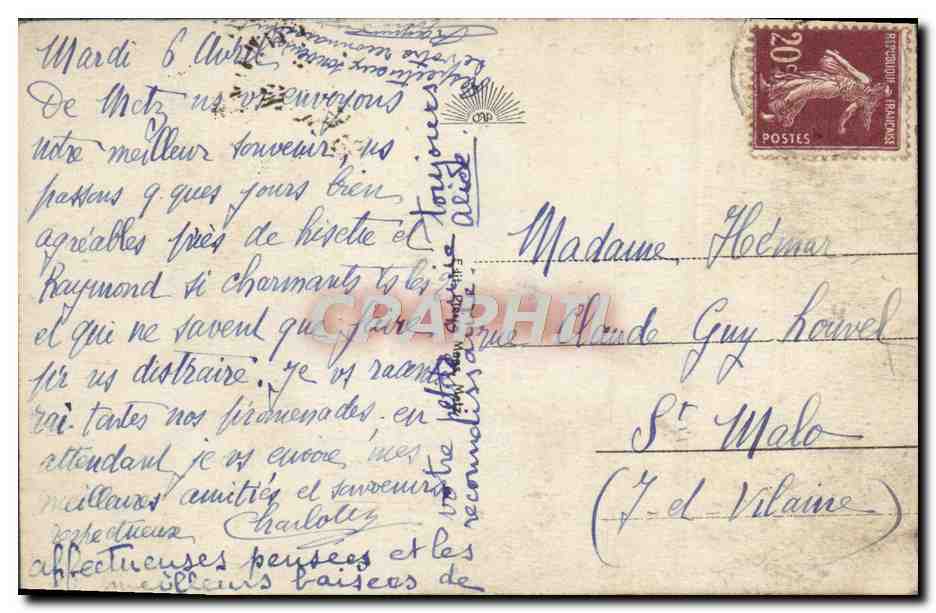 Mardi 6 Avril
De Metz ns vs envoyons
notre meilleur souvenir, ns
passons q. ques jours bien
agréables près de Lisette et
Raymond si charmants ts les 2
et qui ne savent que faire
pr ns distraire. Je vs racont
rai toutes nos promenades. en
attendant je vs envoie mes
meilleures amitiés et souvenirs
respectueux Charlotte
affectueuses pensées et les
meilleurs baisers de
votre petite
reconnaissante
toujours
Alice.
respectueux
de votre reconnaissant
RÉPUBLIQUE FRANÇAISE
20c
POSTES
Madame Hémar
rue Claude Guy Louvel
St Malo
(I-et-Vilaine)
Metz
CPAPHIL